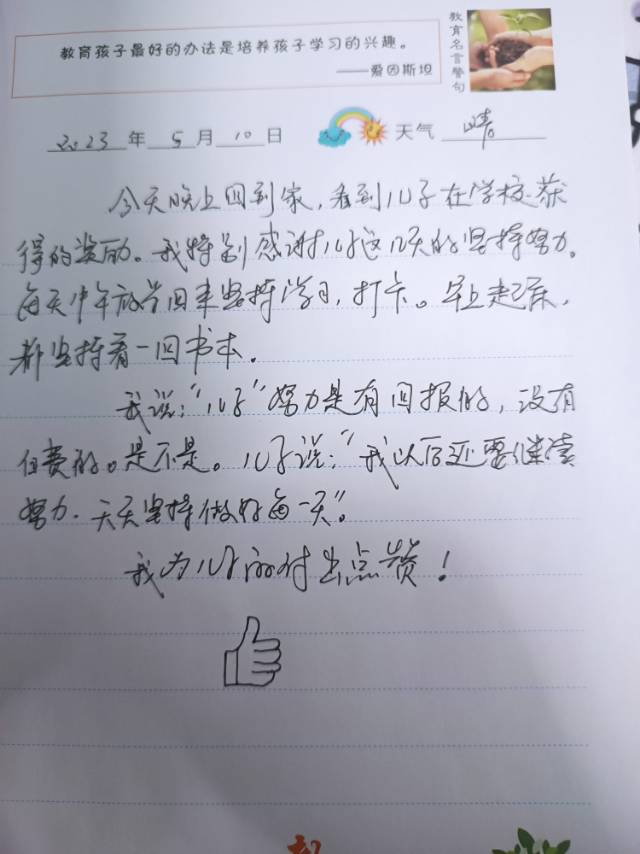 教育孩子最好的办法是培养孩子学习的兴趣。
——爱因斯坦
教育名言警句
2023年5月10日 天气 晴
今天晚上回到家,看到儿子在学校获
得的奖励。我特别感谢儿子这几天的坚持努力。
每天中午放学回来坚持学习,打卡。早上起床,
都坚持看一回书本。
我说:“儿子”努力是有回报的,没有
白费的。是不是。儿子说:“我以后还要继续
努力.天天坚持做好每一天”。
我为儿子的付出点赞!